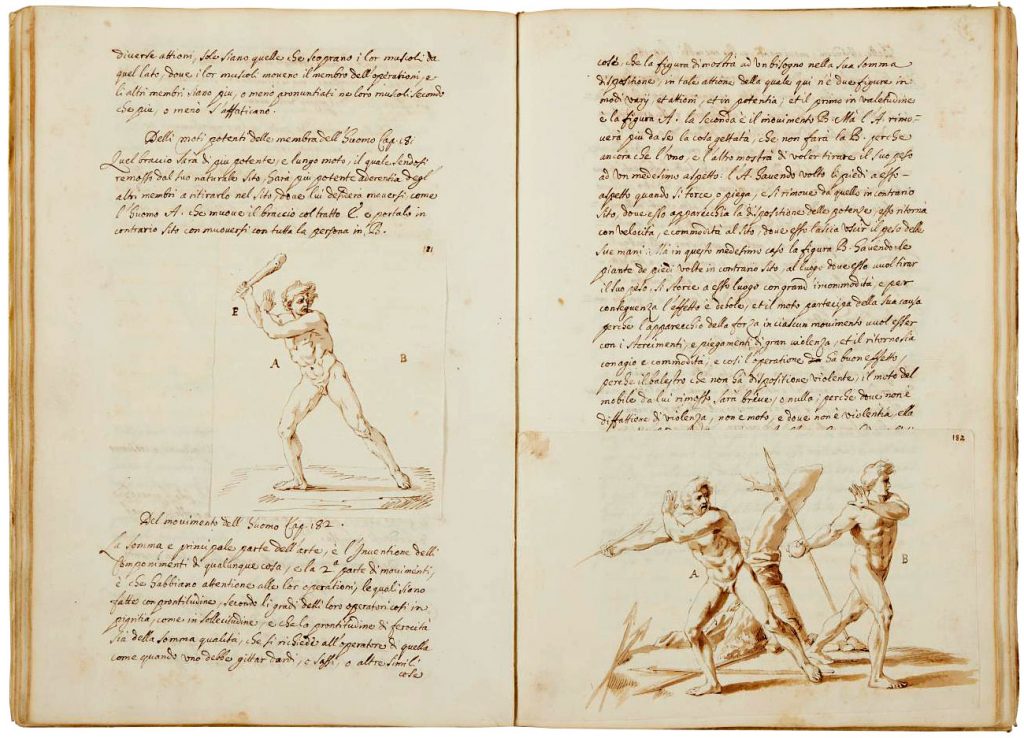 diverse attioni, sole siano quelle che scoprano i lor muscoli da
quel lato, dove i lor muscoli moveno il membro dell'operationi, e
li altri membri siano più, o meno pronuntiati ne loro muscoli secondo
che più, o meno s'affaticano.
Delli moti potenti delle membra dell'huomo Cap. 181
Quel braccio sarà di più potente, e lungo moto, il quale sendosi
remosso dal suo naturale sito, harà più potente aderentia degl'
altri membri a ritirarlo nel sito, dove lui desidera muoversi: come
l'huomo A. che muove il braccio col tratto E. e portalo in
contrario sito con muoversi con tutta la persona in B.
181
E
A
B
Del movimento dell'huomo Cap. 182.
La somma e principale parte dell'arte, è l'Inventione delli
Componimenti di qualunque cosa, e la 2ª parte di movimenti,
è che habbiano attentione alle lor operationi, le quali siano
fatte con prontitudine, secondo li gradi delli loro operatori cosi in
pigritia, come in sollecitudine, e che la prontitudine di ferocità
sia della somma qualità, che si richiede all'operatore di quella
come quando uno debbe gittar dardi, e sassi, o altre simili
cose
cose, che la figura dimostra
sua somma
dispositione, in tale attione della quale qui n'è due figure in
modi vary, et attioni, et in potentia; et il primo in valetudine
è la figura A. la seconda è il movimento B. Ma l'A rimo-
verà più da se la cosa gettata, che non farà la B. perche
ancora che l'uno, e l'altro mostra di voler tirare il suo peso
ad un medesimo aspetto: l'A. havendo volto li piedi a esso
aspetto quando si torce o piega, e si rimove da quello in contrario
sito, dove esso apparecchia la dispositione delle potenze, esso ritorna
con velocità, e commodità al sito, dove esso lascia uscir il peso delle
sue mani. Ma in questo medesimo caso la figura B. havendo le
piante de piedi volte in contrario sito, al luogo dove esso vuol tirar
il suo peso, si storce a esso luogo con grand' incommodità, e per
conseguenza l'effetto è debole, et il moto partecipa della sua causa
perche l'apparecchio della forza in ciascun movimento vuol esser
con i storcimenti, e piegamenti di gran violenza, et il ritorno sia
con agio e commodità, e cosi l'operatione ha buon effetto,
perche il balestro che non ha dispositione violente, il moto del
mobile da lui rimosso, sarà breve, o nulla; perche dove non è
disfattione di violenza, non è moto, e dove non è violentia ella
182
A
B